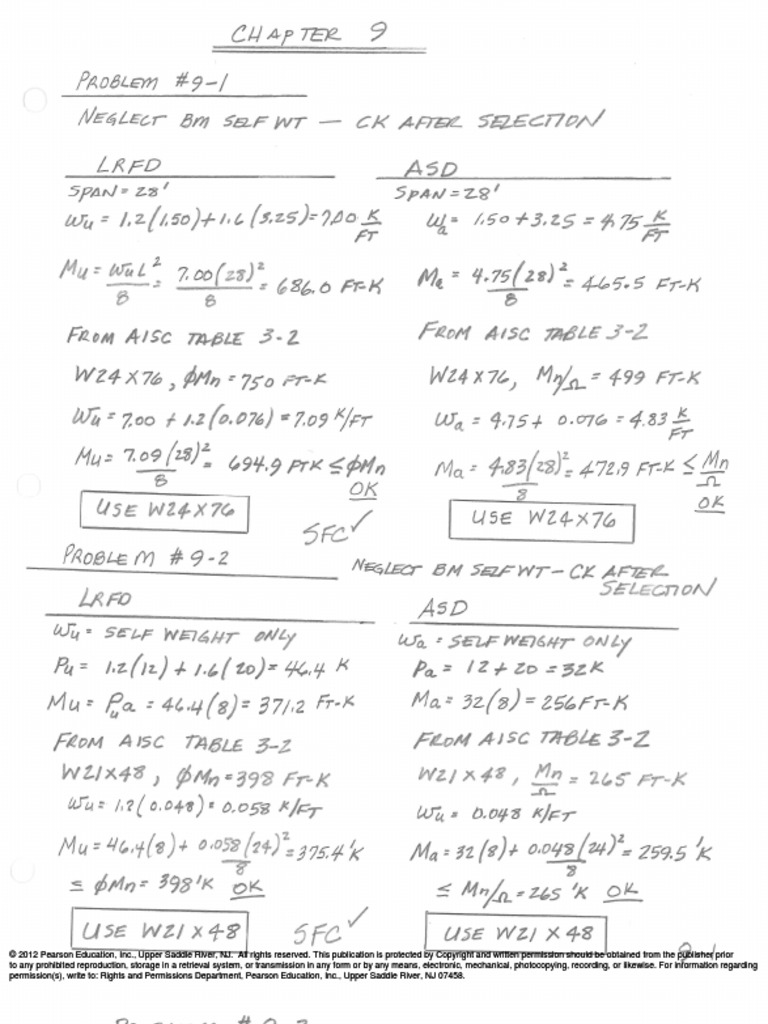 CHAPTER 9
PROBLEM #9-1
NEGLECT BM SELF WT — CK AFTER SELECTION
LRFD
SPAN = 28'
Wu = 1.2(1.50)+1.6(3.25)=7.00 K/FT
Mu = WuL²/8 = 7.00(28)²/8 = 686.0 FT-K
FROM AISC TABLE 3-2
W24X76, φMn = 750 FT-K
Wu = 7.00 + 1.2(0.076) = 7.09 K/FT
Mu = 7.09(28)²/8 = 694.9 FTK ≤ φMn
OK
USE W24X76
SFC✓
ASD
SPAN = 28'
Wa = 1.50+3.25 = 4.75 K/FT
Ma = 4.75(28)²/8 = 465.5 FT-K
FROM AISC TABLE 3-2
W24X76, Mn/Ω = 499 FT-K
Wa = 4.75+ 0.076 = 4.83 K/FT
Ma = 4.83(28)²/8 = 472.9 FT-K ≤ Mn/Ω
OK
USE W24X76
PROBLEM #9-2
NEGLECT BM SELF WT — CK AFTER
SELECTION
LRFD
Wu = SELF WEIGHT ONLY
Pu = 1.2(12)+1.6(20)=46.4 K
Mu = Pua = 46.4(8) = 371.2 FT-K
FROM AISC TABLE 3-2
W21X48, φMn=398 FT-K
Wu = 1.2(0.048) = 0.058 K/FT
Mu = 46.4(8)+ 0.058(24)²/8 = 375.4'K
≤ φMn = 398'K OK
USE W21X48
SFC✓
ASD
Wa = SELF WEIGHT ONLY
Pa = 12+20 = 32K
Ma = 32(8) = 256FT-K
FROM AISC TABLE 3-2
W21X48, Mn/Ω = 265 FT-K
Wu = 0.048 K/FT
Ma = 32(8)+ 0.048(24)²/8 = 259.5'K
≤ Mn/Ω = 265 'K OK
USE W21X48
© 2012 Pearson Education, Inc., Upper Saddle River, NJ. All rights reserved. This publication is protected by Copyright and written permission should be obtained from the publisher prior
to any prohibited reproduction, storage in a retrieval system, or transmission in any form or by any means, electronic, mechanical, photocopying, recording, or likewise. For information regarding
permission(s), write to: Rights and Permissions Department, Pearson Education, Inc., Upper Saddle River, NJ 07458.